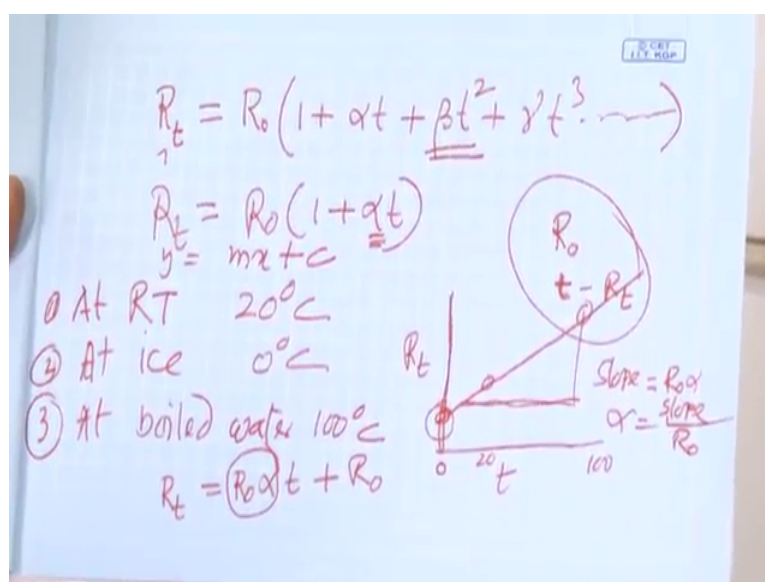 © CET
I.I.T. KGP
R_t = R_0 (1 + αt + βt² + γt³ ........)
R_t = R_0 (1 + αt)
y = mx + c
① At RT 20°C
② At ice 0°C
③ At boiled water 100°C
R_t = R_0 α t + R_0
R_0
t - R_t
R_t
Slope = R_0 α
α = slope / R_0
0 20 100
t